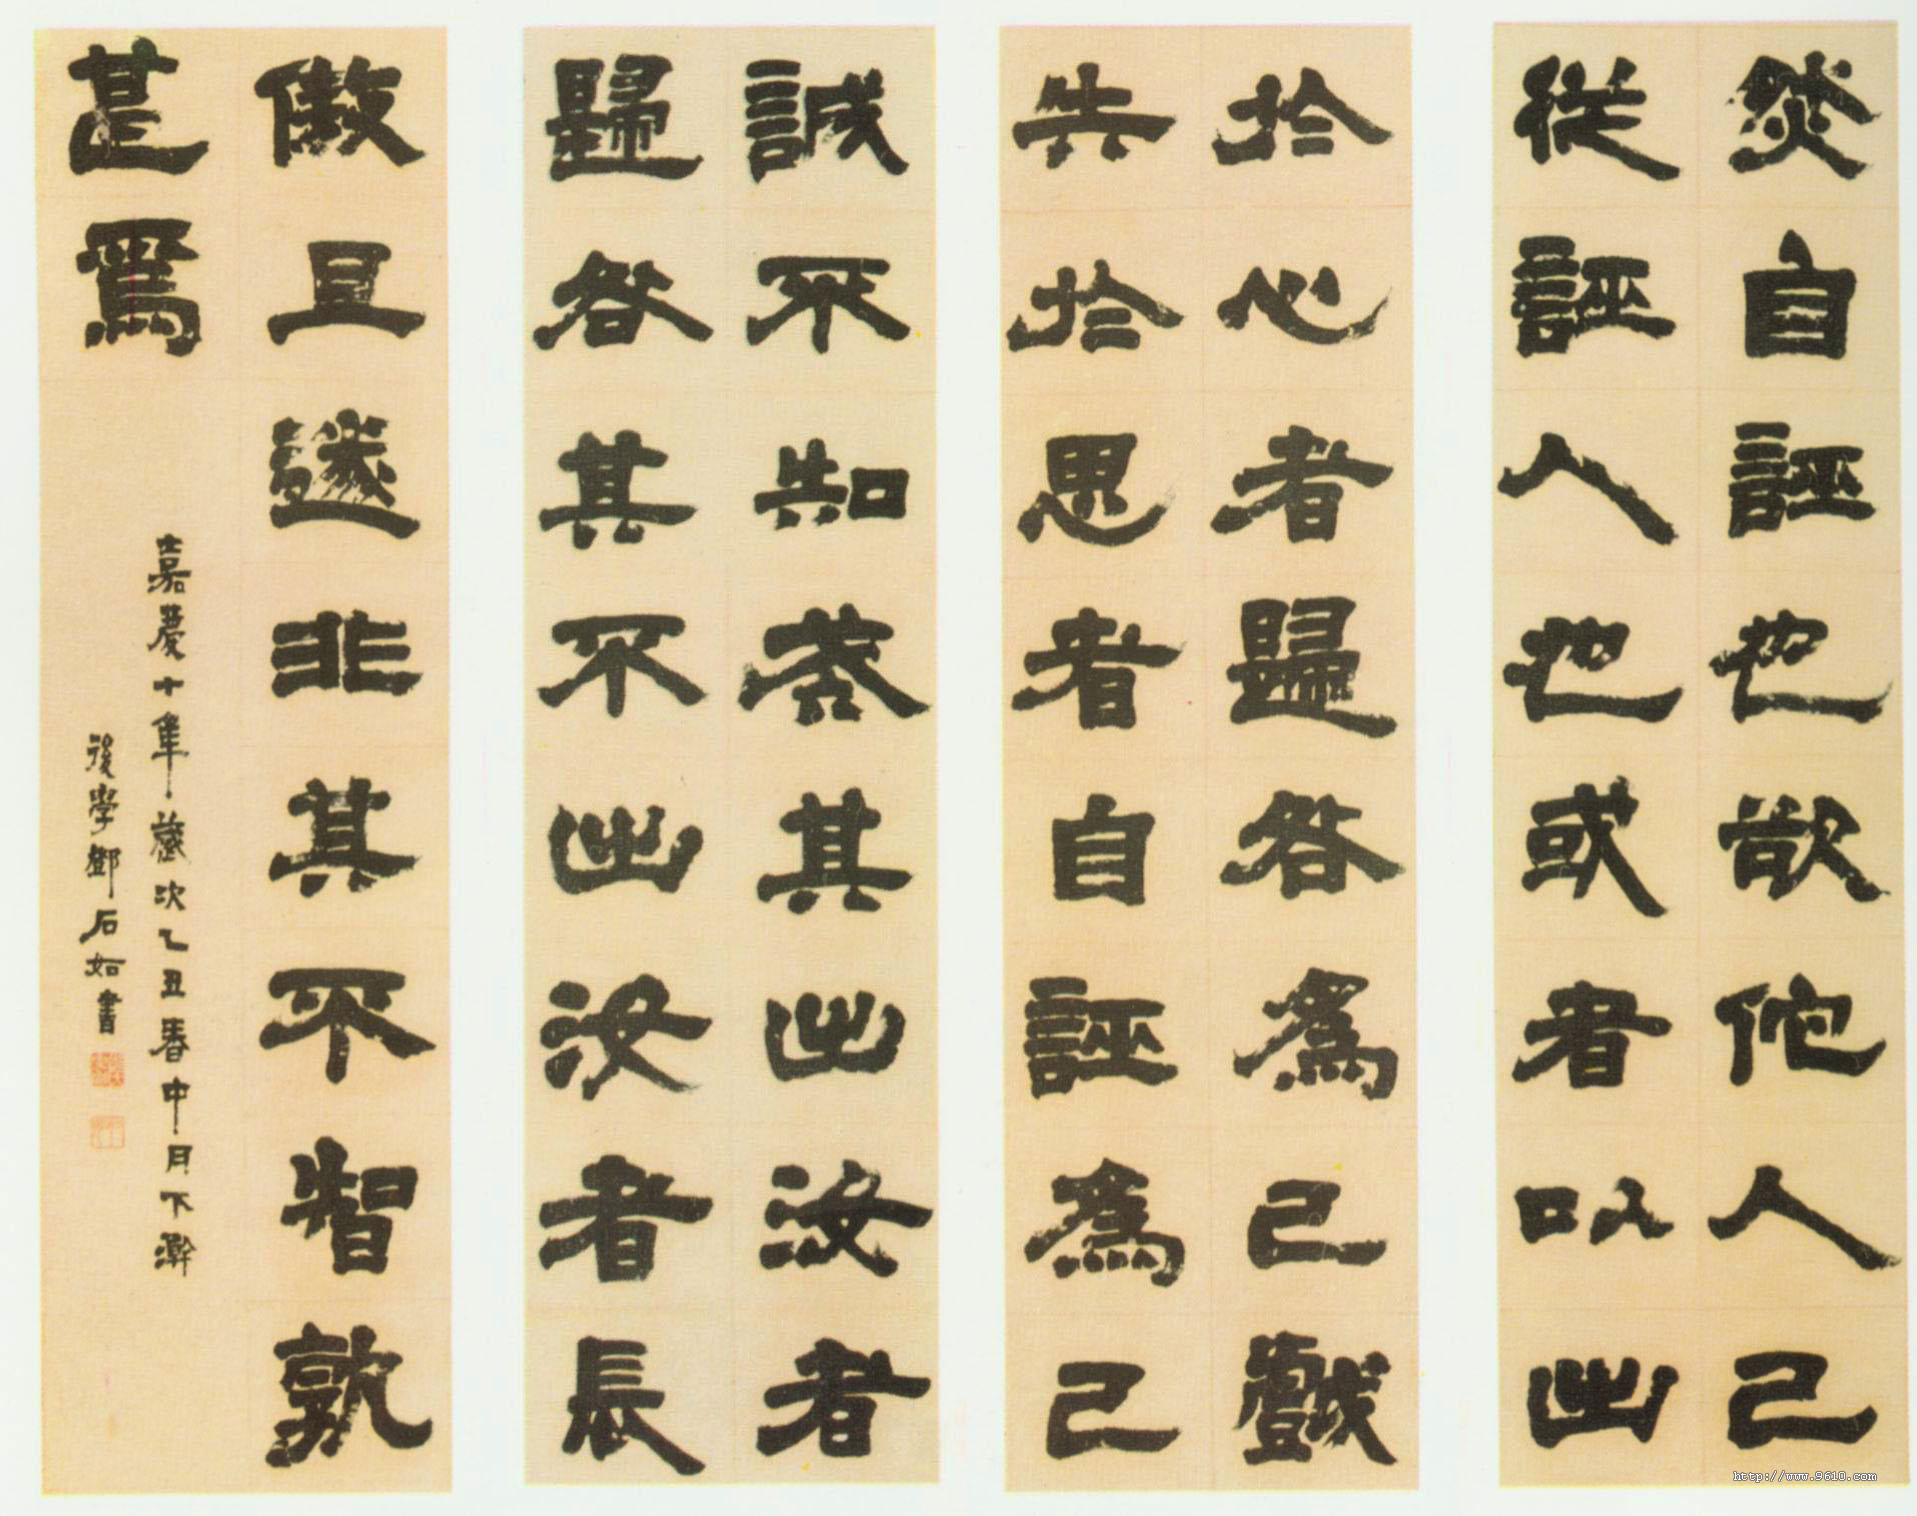 然自誣也欲他人己
從誣人也或者以出
於心者歸咎為己戲
失於思者自誣為己
誠不知戒其出汝者
歸咎其不出汝者長
傲且遂非其不智孰
甚焉
嘉慶十年歲次乙丑春中月下澣
後學鄧石如書
http://www.9610.com